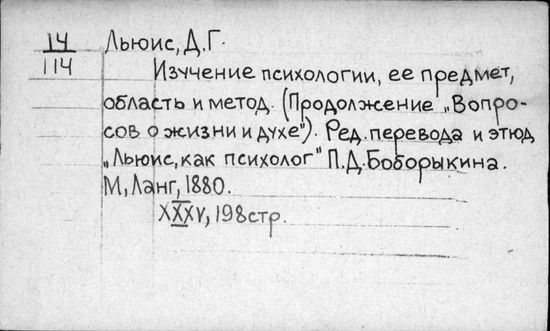 14
114
Льюис, Д.Г.
Изучение психологии, ее предмет,
область и метод. (Продолжение „Вопро-
сов о жизни и духе"). Ред. перевода и этюд
„Льюис, как психолог" П.Д. Боборыкина.
М, Ланг, 1880.
XXXV, 198 стр.